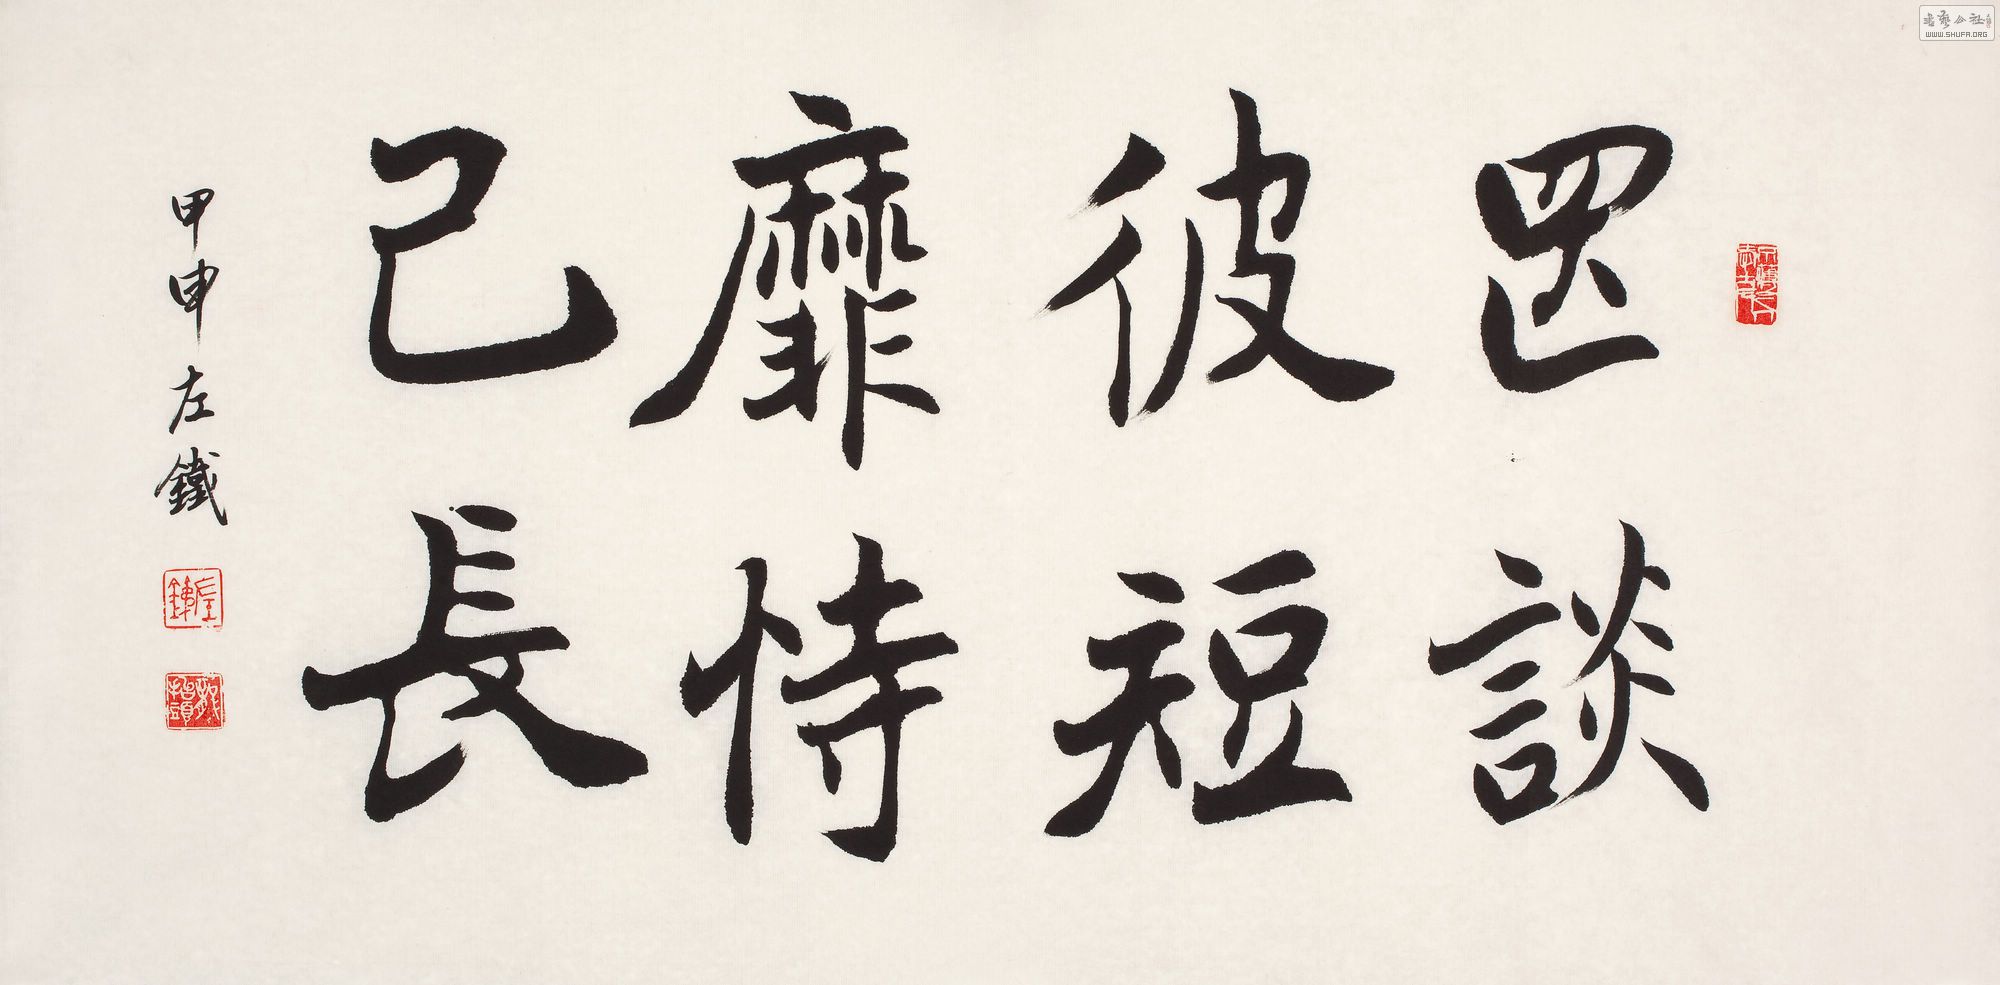 罔談
彼短
靡恃
己長
甲申左鐵
書藝公社
WWW.SHUFA.ORG
左鐵